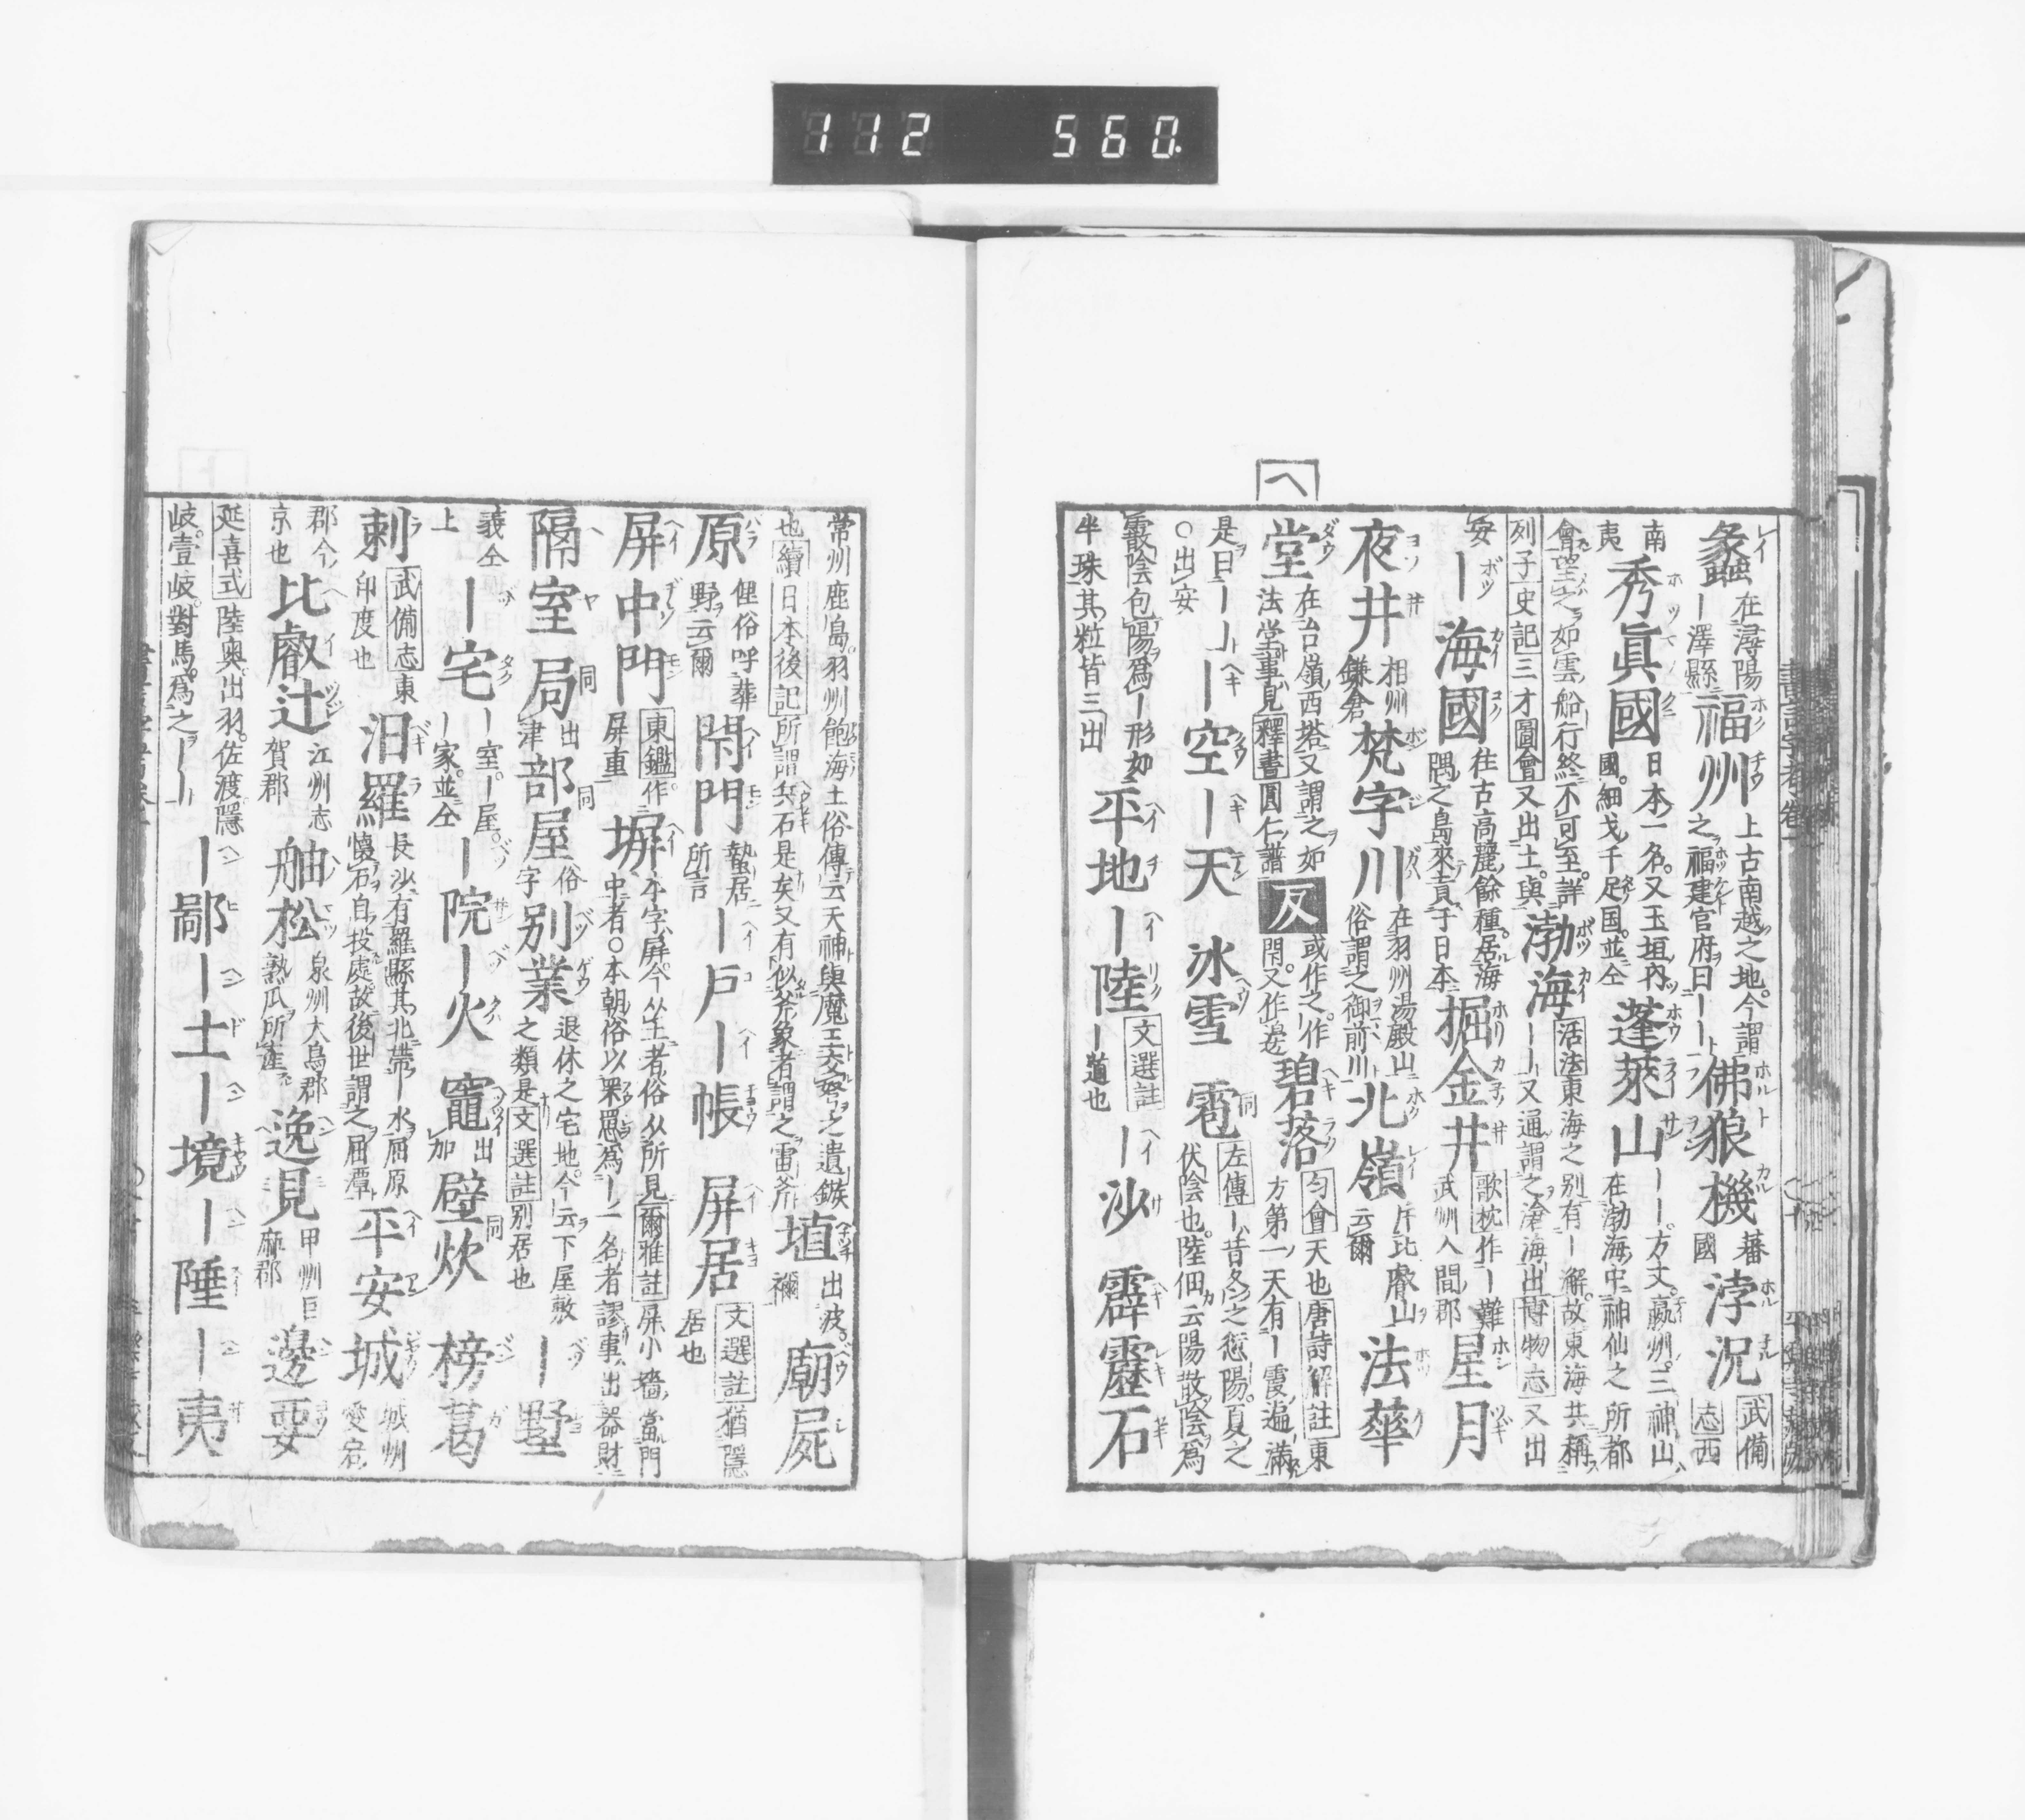 112 560.
ヘ
蠡 在潯陽ー澤縣 福州 上古南越之地今謂之福建官府曰ーー 佛狼機 蕃國 浡況 武備志西
南夷 秀眞國 日本一名又玉垣内國細戈千足国並仝 蓬萊山 ーー方丈瀛州三神山在渤海中神仙之所都
會望之如雲船行終不可至詳列子史記三才圖會又出土與 渤海 活法東海之別有ー解故東海共稱ーー又通謂之滄海出博物志又出
安 ー海國 往古高麗餘種居海隅之島來貢于日本 掘金井 歌枕作ー難武州入間郡 星月
夜井 相州鎌倉 梵字川 在羽州湯殿山俗謂之御前川 北嶺 斥比睿山云爾 法華
堂 在台嶺西塔又謂之如法堂事見釋書圓仁譜 反 或作之作閇又作邊 碧落 匀會天也唐詩解註東方第一天有ー霞遍滿
是曰ーー○出安 ー空 ー天 冰雪 雹 左傳ー昔冬之愆陽夏之伏陰也陸佃云陽散陰爲
霰陰包陽爲ー形如半珠其粒皆三出 平地 ー陸 文選註ー道也 ー沙 霹靂石
常州鹿島羽州飽海土俗傳云天神與魔王交弩之遺鏃也續日本後記所謂兵石是矣又有似斧象者謂之雷斧 埴 出波禰 廟屍
原 俚俗呼葬野云爾 閇門 蟄居所言 ー戸 ー帳 屏居 文選註猶隱居也
屏中門 東鑑作屏重 塀 本字屏今从土者俗从所見爾雅註屏小墻當門中者○本朝俗以罘罳爲ー一名者謬事出器財
隔室 局 出津 部屋 俗字 別業 退休之宅地今云下屋敷之類是文選註別居也 ー墅
義仝上 ー宅 ー室ー屋ー家並仝 ー院 ー火 竈 出加 壁炊 榜葛
剌 武備志東印度也 汨羅 長沙有羅縣其北帶ー水屈原懷石自投處故後世謂之屈潭 平安城 城州愛宕
郡今京也 比叡辻 江州志賀郡 舳松 泉州大鳥郡熟瓜所產 逸見 甲州巨麻郡 邊要
延喜式陸奧出羽佐渡隱岐壹岐對馬爲之ーー ー鄙 ー土 ー境 ー陲 ー夷